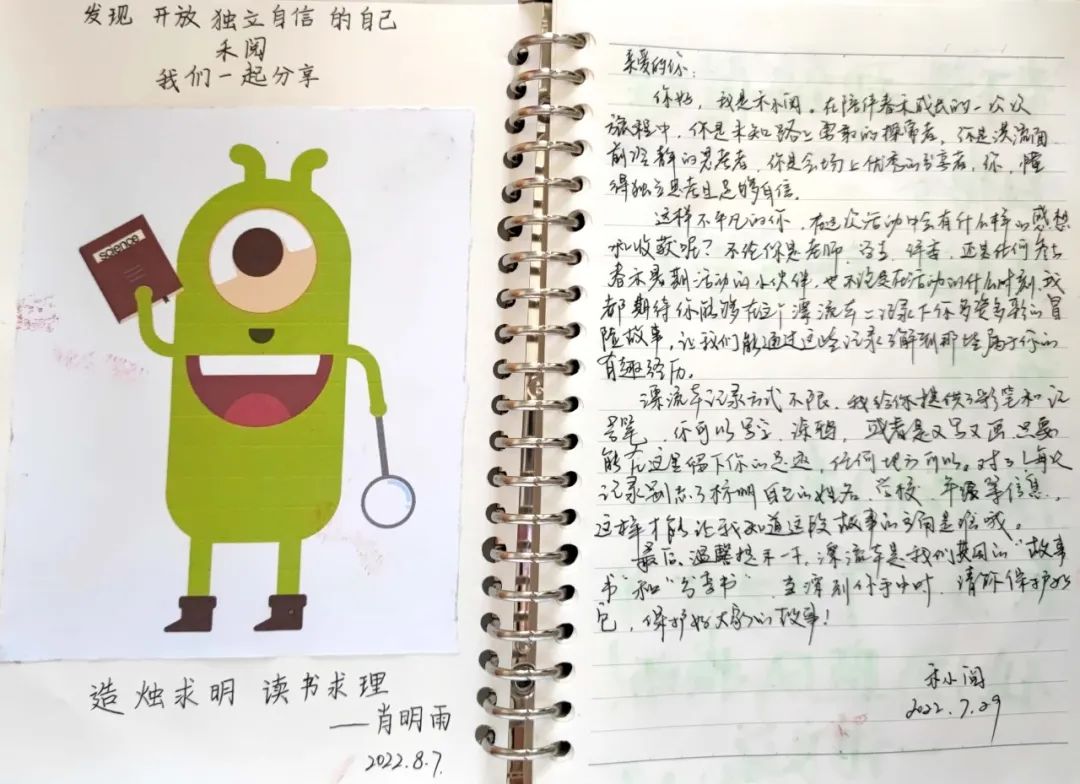 发现 开放 独立自信 的自己
禾阅
我们一起分享
science
造烛求明 读书求理
——肖明雨
2022.8.7.
亲爱的你：
你好，我是禾小阅。在陪伴着禾成长的一次次
旅程中，你是未知路上勇敢的探索者，你是洪流面
前冷静的思考者，你是会场上优秀的分享者，你，懂
得独立思考且足够自信。
这样不平凡的你，在这次活动中会有什么样的感想
和收获呢？不论你是老师、学生、伴读、还是任何参与
者禾暑期活动的小伙伴，也不论是在活动的什么时刻，我
都期待你能够在这个漂流本上记录下你多姿多彩的冒
险故事，让我们能通过这些记录了解到那些属于你的
有趣经历。
漂流本记录方式不限，我给你提供了彩笔和记
号笔，你可以写字、涂鸦，或者是又写又画，只要
能在这里留下你的足迹，任何地方可以。对了！每次
记录别忘了标明自己的姓名、学校、年级等信息，
这样才能让我知道这段故事的主角是谁哦。
最后，温馨提示一下，漂流本是我们共同的“故事
书”和“分享书”，当漂到你手中时，请你保护好
它，保护好大家的故事！
禾小阅
2022.7.29